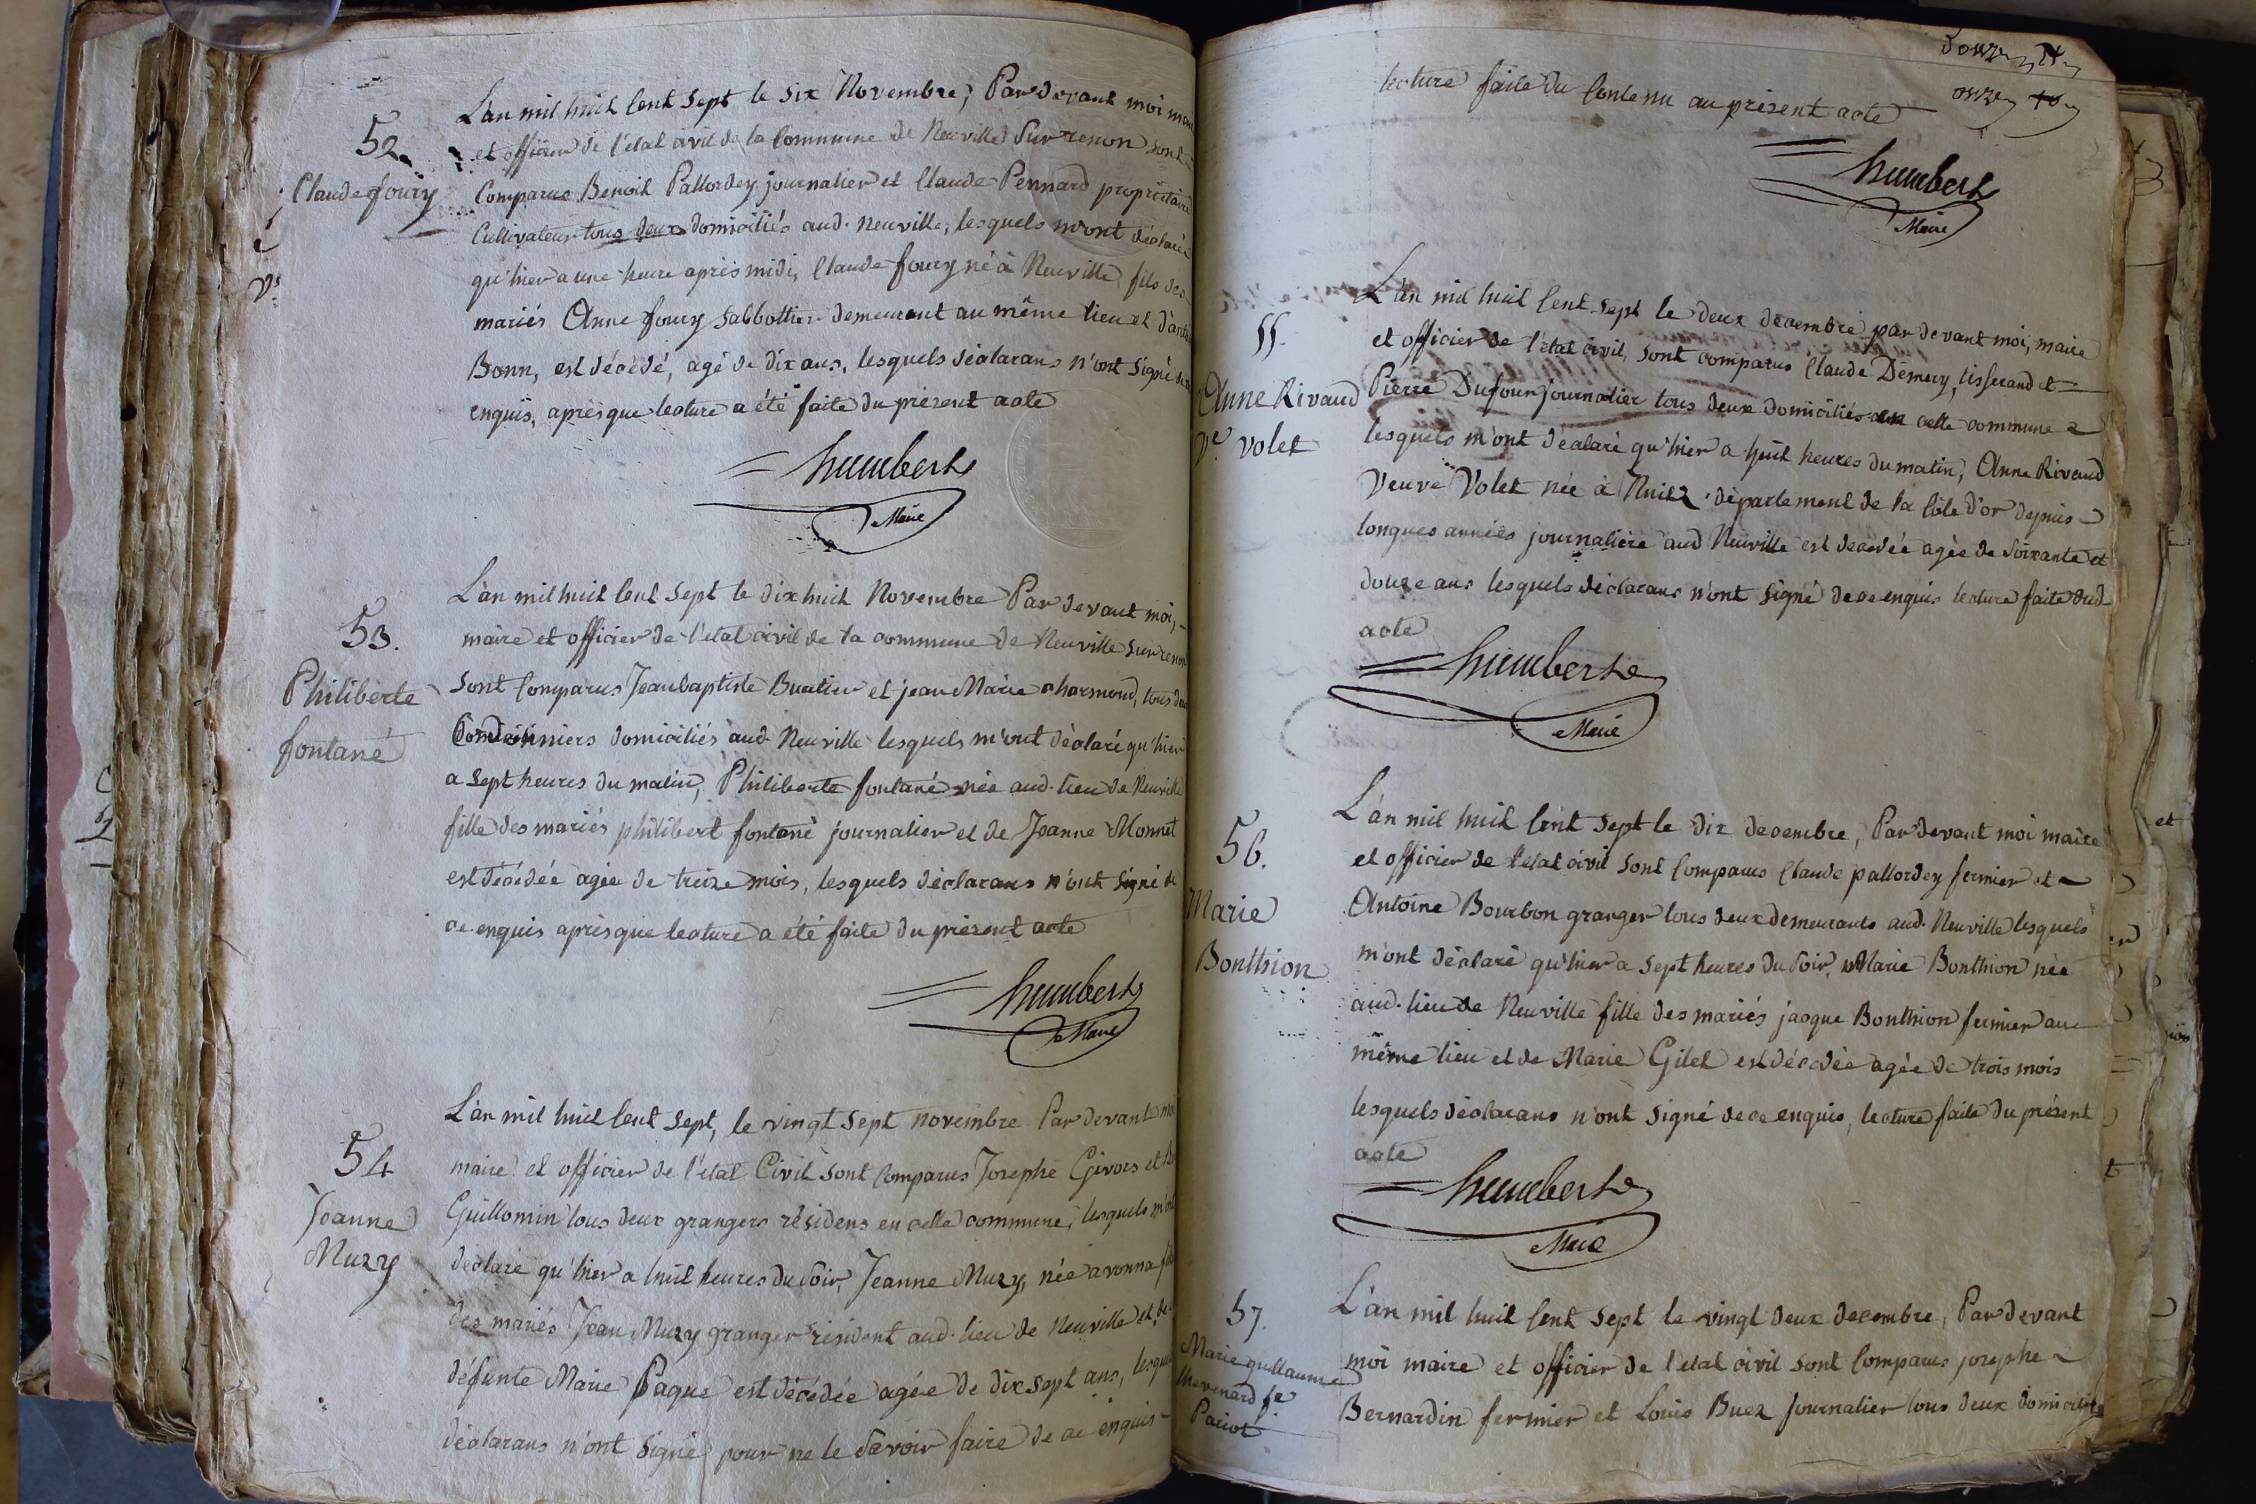 52.
Claude foury
L'an mil huit Cent Sept le Six Novembre, Pardevant moi
et officier de l'état civil de la Commune de Neuville Sur renon sont
Comparus Benoit Pallordey journalier et Claude Pennard propriétaire
Cultivateur tous deux domiciliés aud. Neuville, lesquels m'ont déclaré
qu'hier a une heure après midi, Claude foury né à Neuville, fils des
mariés Anne foury Sabbottier demeurant au même lieu et
Bonn, est décédé, agé de dix ans, lesquels déclarans n'ont Signé
enquis, après que lecture a été faite du présent acte
humbert
Maire
53.
Philiberte
fontané
L'an mil huit Cent Sept le dix huit Novembre Par devant moi,
maire et officier de l'état civil de la commune de Neuville Sur renon
Sont Comparus Jeanbaptiste Buatier et jean Marie charmond, tous
Cordonniers domiciliés aud. Neuville lesquels m'ont déclaré qu'hier
a Sept heures du matin, Philiberte fontané née aud. lieu de Neuville
fille des mariés philibert fontané journalier et de Jeanne Monnet
est décédée agée de treize mois, lesquels déclarans n'ont Signé de
ce enquis après que lecture a été faite du présent acte
humbert
Maire
54
Jeanne
Muzy
L'an mil huit Cent Sept, le vingt Sept novembre Par devant moi
maire et officier de l'état Civil Sont Comparus Josephe Givors et
Guillomin tous deux grangers résidens en cette commune, lesquels m'ont
déclaré qu'hier a huit heures du Soir, Jeanne Muzy, née a vonna
des mariés Jean Muzy granger résident aud. lieu de Neuville et de
défunte Marie Paque est décédée agée de dix Sept ans, lesquels
déclarans n'ont Signé pour ne le Savoir faire de ce enquis
douze
onze
lecture faite du Contenu au présent acte
humbert
Maire
55.
Anne Rivaud
Ve. Volet
L'an mil huit Cent Sept le deux decembre par devant moi, maire
et officier de l'état civil, Sont comparus Claude Demery, tisserand et
Pierre Dufour journalier tous deux domiciliés en cette commune
lesquels m'ont déclaré qu'hier a huit heures du matin, Anne Rivaud
Veuve Volet née à Nuitz département de la Côte d'or depuis
longues années journalière aud Neuville est décédée agée de Soixante et
douze ans lesquels déclarans n'ont Signé de ce enquis lecture faite dud.
acte
humbert
Maire
56.
Marie
Bonthion
L'an mil huit Cent Sept le dix decembre, Par devant moi maire
et officier de l'état civil Sont Comparus Claude pallordey fermier et
Antoine Bourbon granger tous deux demeurants aud. Neuville lesquels
m'ont déclaré qu'hier a Sept heures du Soir, Marie Bonthion née
aud. lieu de Neuville fille des mariés jacque Bonthion fermier au
même lieu et de Marie Gilet est décédée agée de trois mois
lesquels déclarans n'ont Signé de ce enquis, lecture faite du présent
acte
humbert
Maire
57.
Marie guillaume
thevenard fe
Pariot
L'an mil huit Cent Sept le vingt deux decembre, Par devant
moi maire et officier de l'état civil Sont Comparus josephe
Bernardin fermier et Louis Buez journalier tous deux domiciliés